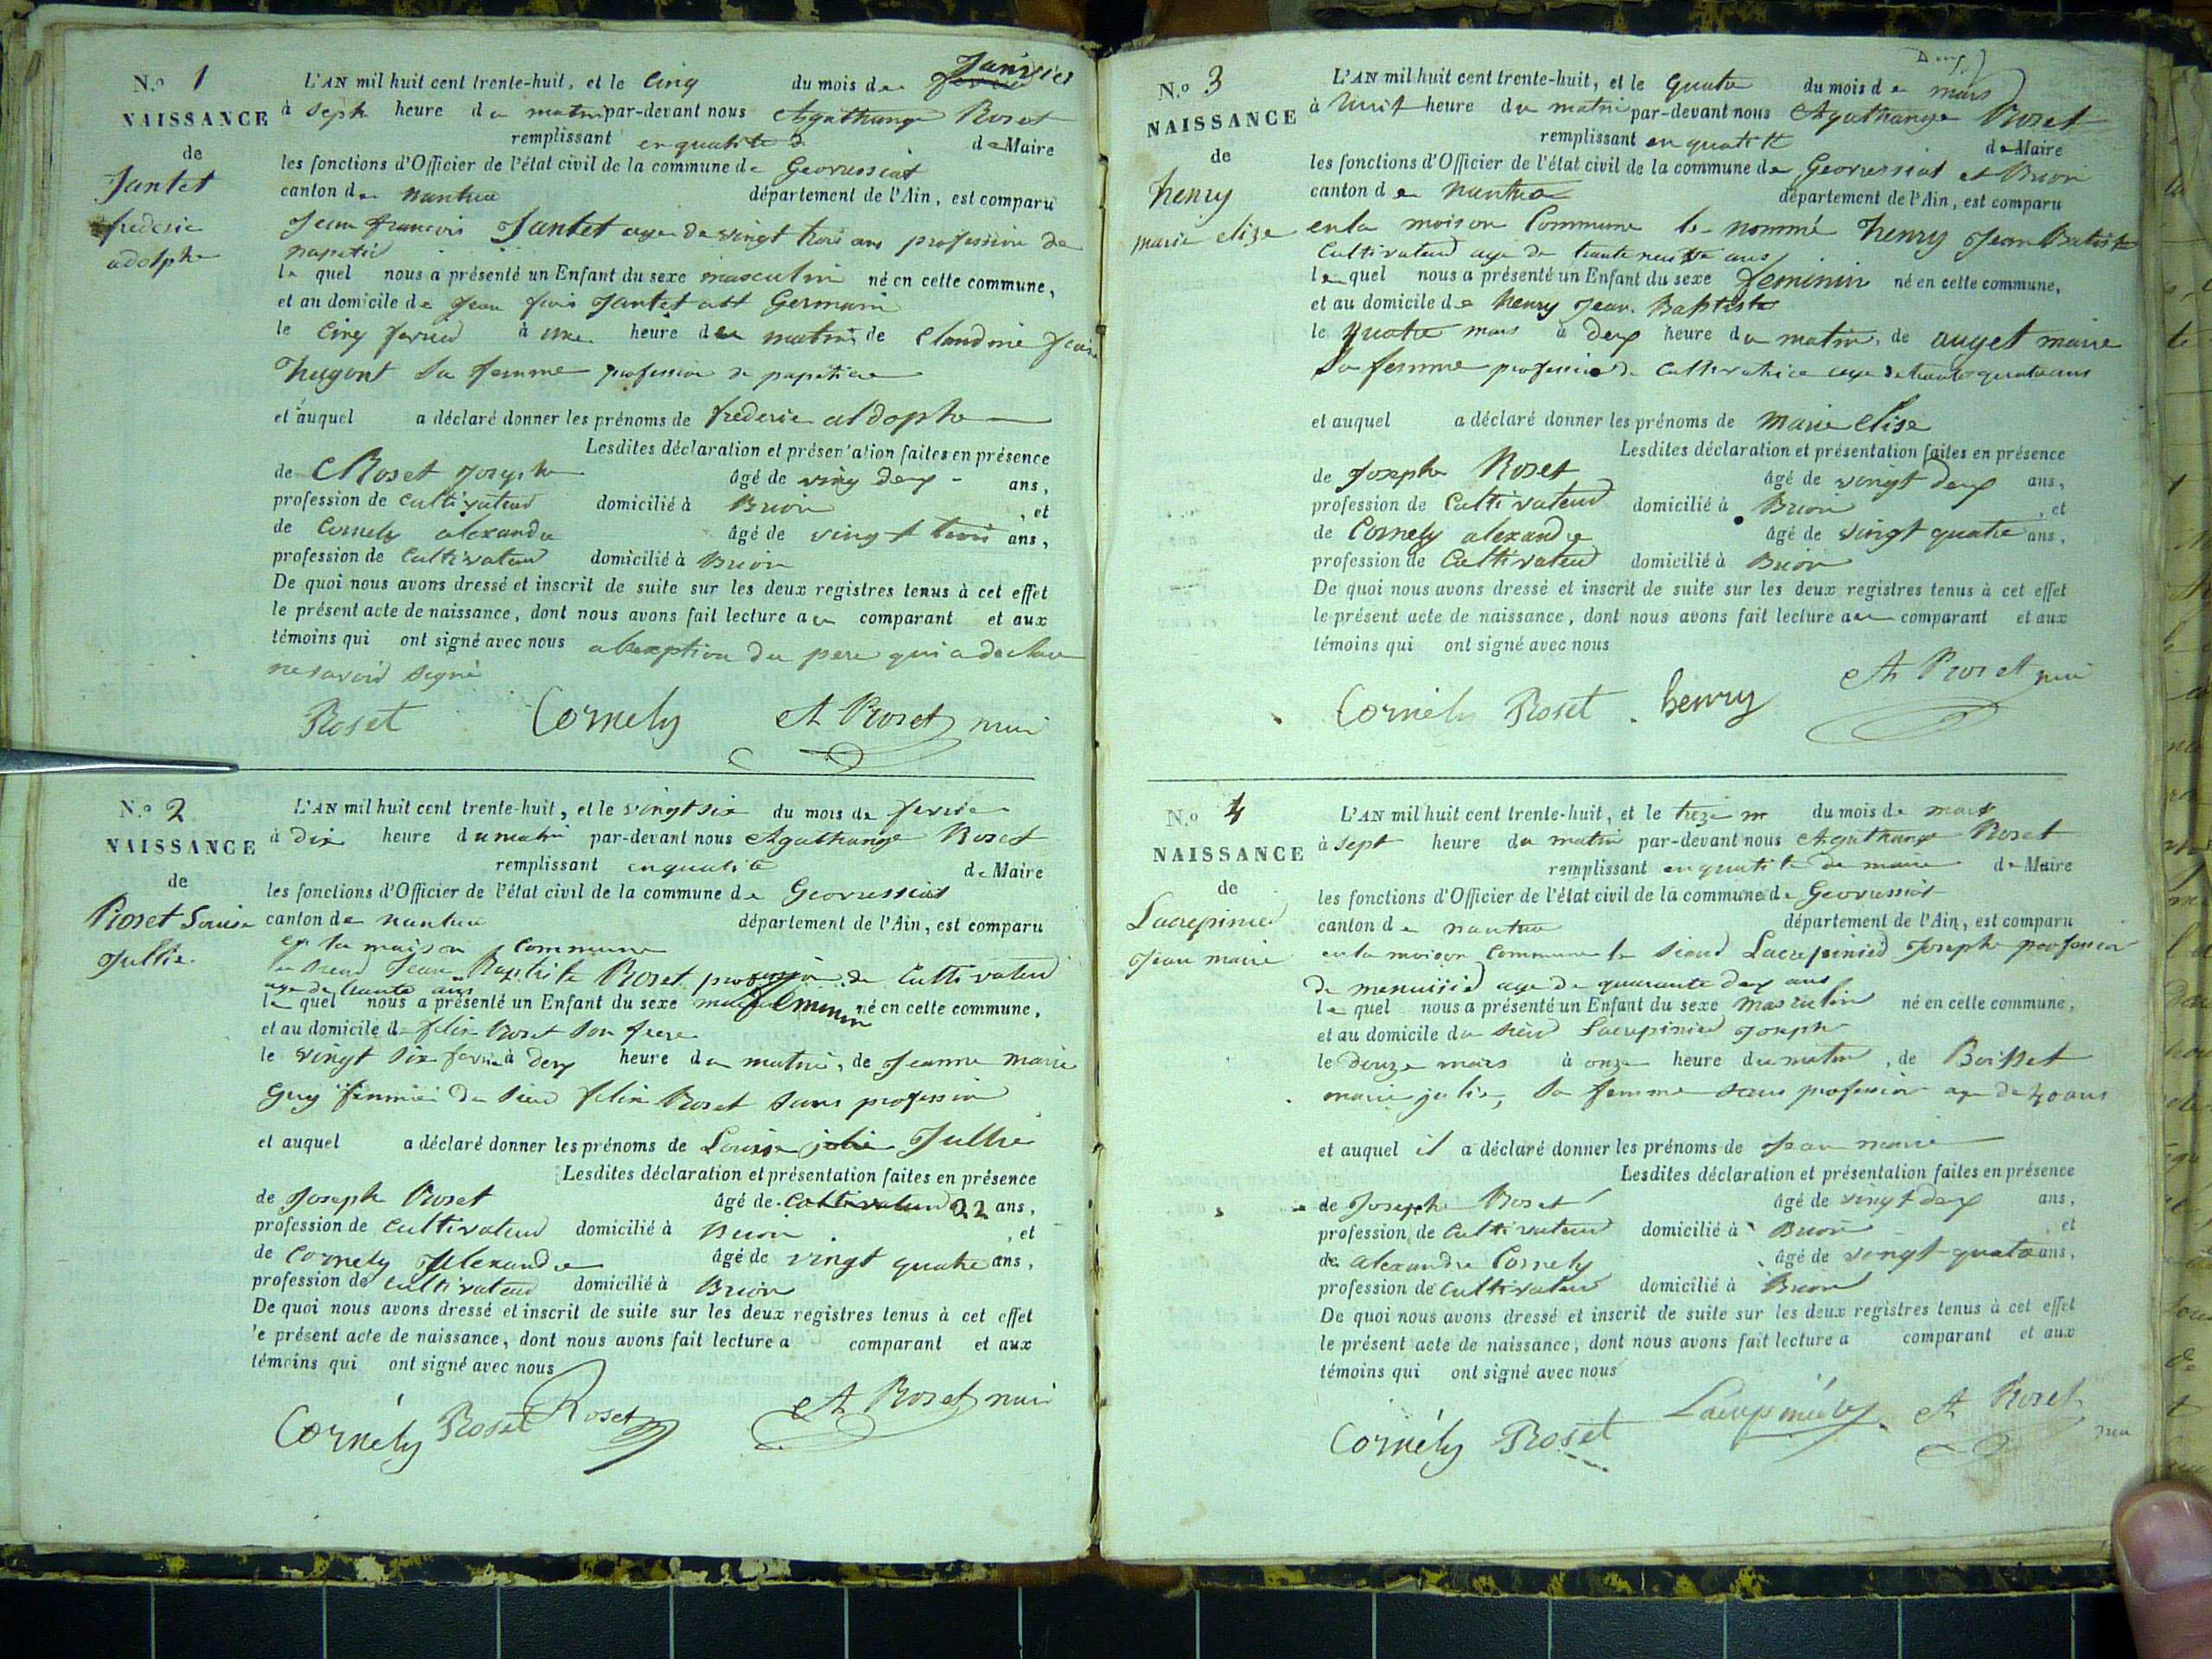 N.º 1
NAISSANCE
de
Jantet
frederic
adolphe
L'AN mil huit cent trente-huit, et le cinq du mois de fevrier Janvier
à sept heure du matin par-devant nous Agathange Roset
remplissant en qualité d de Maire
les fonctions d'Officier de l'état civil de la commune de Geovressiat
canton de nantua département de l'Ain, est comparu
Jean francois Jantet age de vingt trois ans profession de
papetié
le quel nous a présenté un Enfant du sexe masculin né en cette commune,
et au domicile de Jean fois Jantet a St Germain
le cinq fevrier à une heure du matin de Claudine
hugont sa femme profession de papetiere
et auquel a déclaré donner les prénoms de frederic aldophe
Lesdites déclaration et présentation faites en présence
de Roset Joseph âgé de ving deux ans,
profession de cultivateur domicilié à Brion , et
de Cornely alexandre âgé de vingt trois ans,
profession de cultivateur domicilié à Brion
De quoi nous avons dressé et inscrit de suite sur les deux registres tenus à cet effet
le présent acte de naissance, dont nous avons fait lecture au comparant et aux
témoins qui ont signé avec nous alexeption du pere qui a declare
ne savoir signé
Roset Cornely At Roset
N.º 2
NAISSANCE
de
Roset Louise
Jullie
L'AN mil huit cent trente-huit, et le vingt six du mois de fevrie
à dix heure du matin par-devant nous Agathange Roset
remplissant en qualité de Maire
les fonctions d'Officier de l'état civil de la commune de Geovressiat
canton de nantua département de l'Ain, est comparu
en la maison commune
le sieur Jean Baptiste Roset profession de cultivateur
age de trante ans
le quel nous a présenté un Enfant du sexe feminin né en cette commune,
et au domicile de felix Roset son frere
le vingt six fevrie à deux heure du matin, de Jeanne marie
Guy femme du sieur felix Roset sans profession
et auquel a déclaré donner les prénoms de Louise jolie Jullie
Lesdites déclaration et présentation faites en présence
de Joseph Roset âgé de cultivateur 22 ans,
profession de cultivateur domicilié à Brion , et
de Cornely Alexandre âgé de vingt quatre ans,
profession de cultivateur domicilié à Brion
De quoi nous avons dressé et inscrit de suite sur les deux registres tenus à cet effet
le présent acte de naissance, dont nous avons fait lecture a comparant et aux
témoins qui ont signé avec nous
Cornély Roset Roset At Roset
N.º 3
NAISSANCE
de
henry
marie elise
L'AN mil huit cent trente-huit, et le quatre du mois de mars
à huit heure du matin par-devant nous Agathange Roset
remplissant en qualité de Maire
les fonctions d'Officier de l'état civil de la commune de Geovressiat et Brion
canton de nantua département de l'Ain, est comparu
en la maison Commune le nommé henry Jean Batiste
cultivateur age de trante neuf ans
le quel nous a présenté un Enfant du sexe feminin né en cette commune,
et au domicile de henry Jean Baptiste
le quatre mars à deux heure du matin, de auget marie
sa femme profession de cultivatrice age de trante quatre ans
et auquel a déclaré donner les prénoms de marie elise
Lesdites déclaration et présentation faites en présence
de Joseph Roset âgé de vingt deux ans,
profession de cultivateur domicilié à Brion , et
de Cornely alexandre âgé de vingt quatre ans,
profession de cultivateur domicilié à Brion
De quoi nous avons dressé et inscrit de suite sur les deux registres tenus à cet effet
le présent acte de naissance, dont nous avons fait lecture au comparant et aux
témoins qui ont signé avec nous
Cornély Roset henry At Roset
N.º 4
NAISSANCE
de
Lacrepinied
Jean marie
L'AN mil huit cent trente-huit, et le treze du mois de mars
à sept heure du matin par-devant nous Agathange Roset
remplissant en qualité de maire de Maire
les fonctions d'Officier de l'état civil de la commune de Geovressiat
canton de nantua département de l'Ain, est comparu
en la maison commune le sieur Lacrepinied Joseph profession
de menuisié age de quarante deux ans
le quel nous a présenté un Enfant du sexe masculin né en cette commune,
et au domicile du sieur Lacrepinied Joseph
le douze mars à onze heure du matin, de Boisset
marie julie, sa femme sans profession age de 40 ans
et auquel il a déclaré donner les prénoms de Jean marie
Lesdites déclaration et présentation faites en présence
de Joseph Roset âgé de vingt deux ans,
profession de cultivateur domicilié à Brion , et
de alexandre Cornely âgé de vingt quatre ans,
profession de cultivateur domicilié à Brion
De quoi nous avons dressé et inscrit de suite sur les deux registres tenus à cet effet
le présent acte de naissance, dont nous avons fait lecture a comparant et aux
témoins qui ont signé avec nous
Cornély Roset At Roset